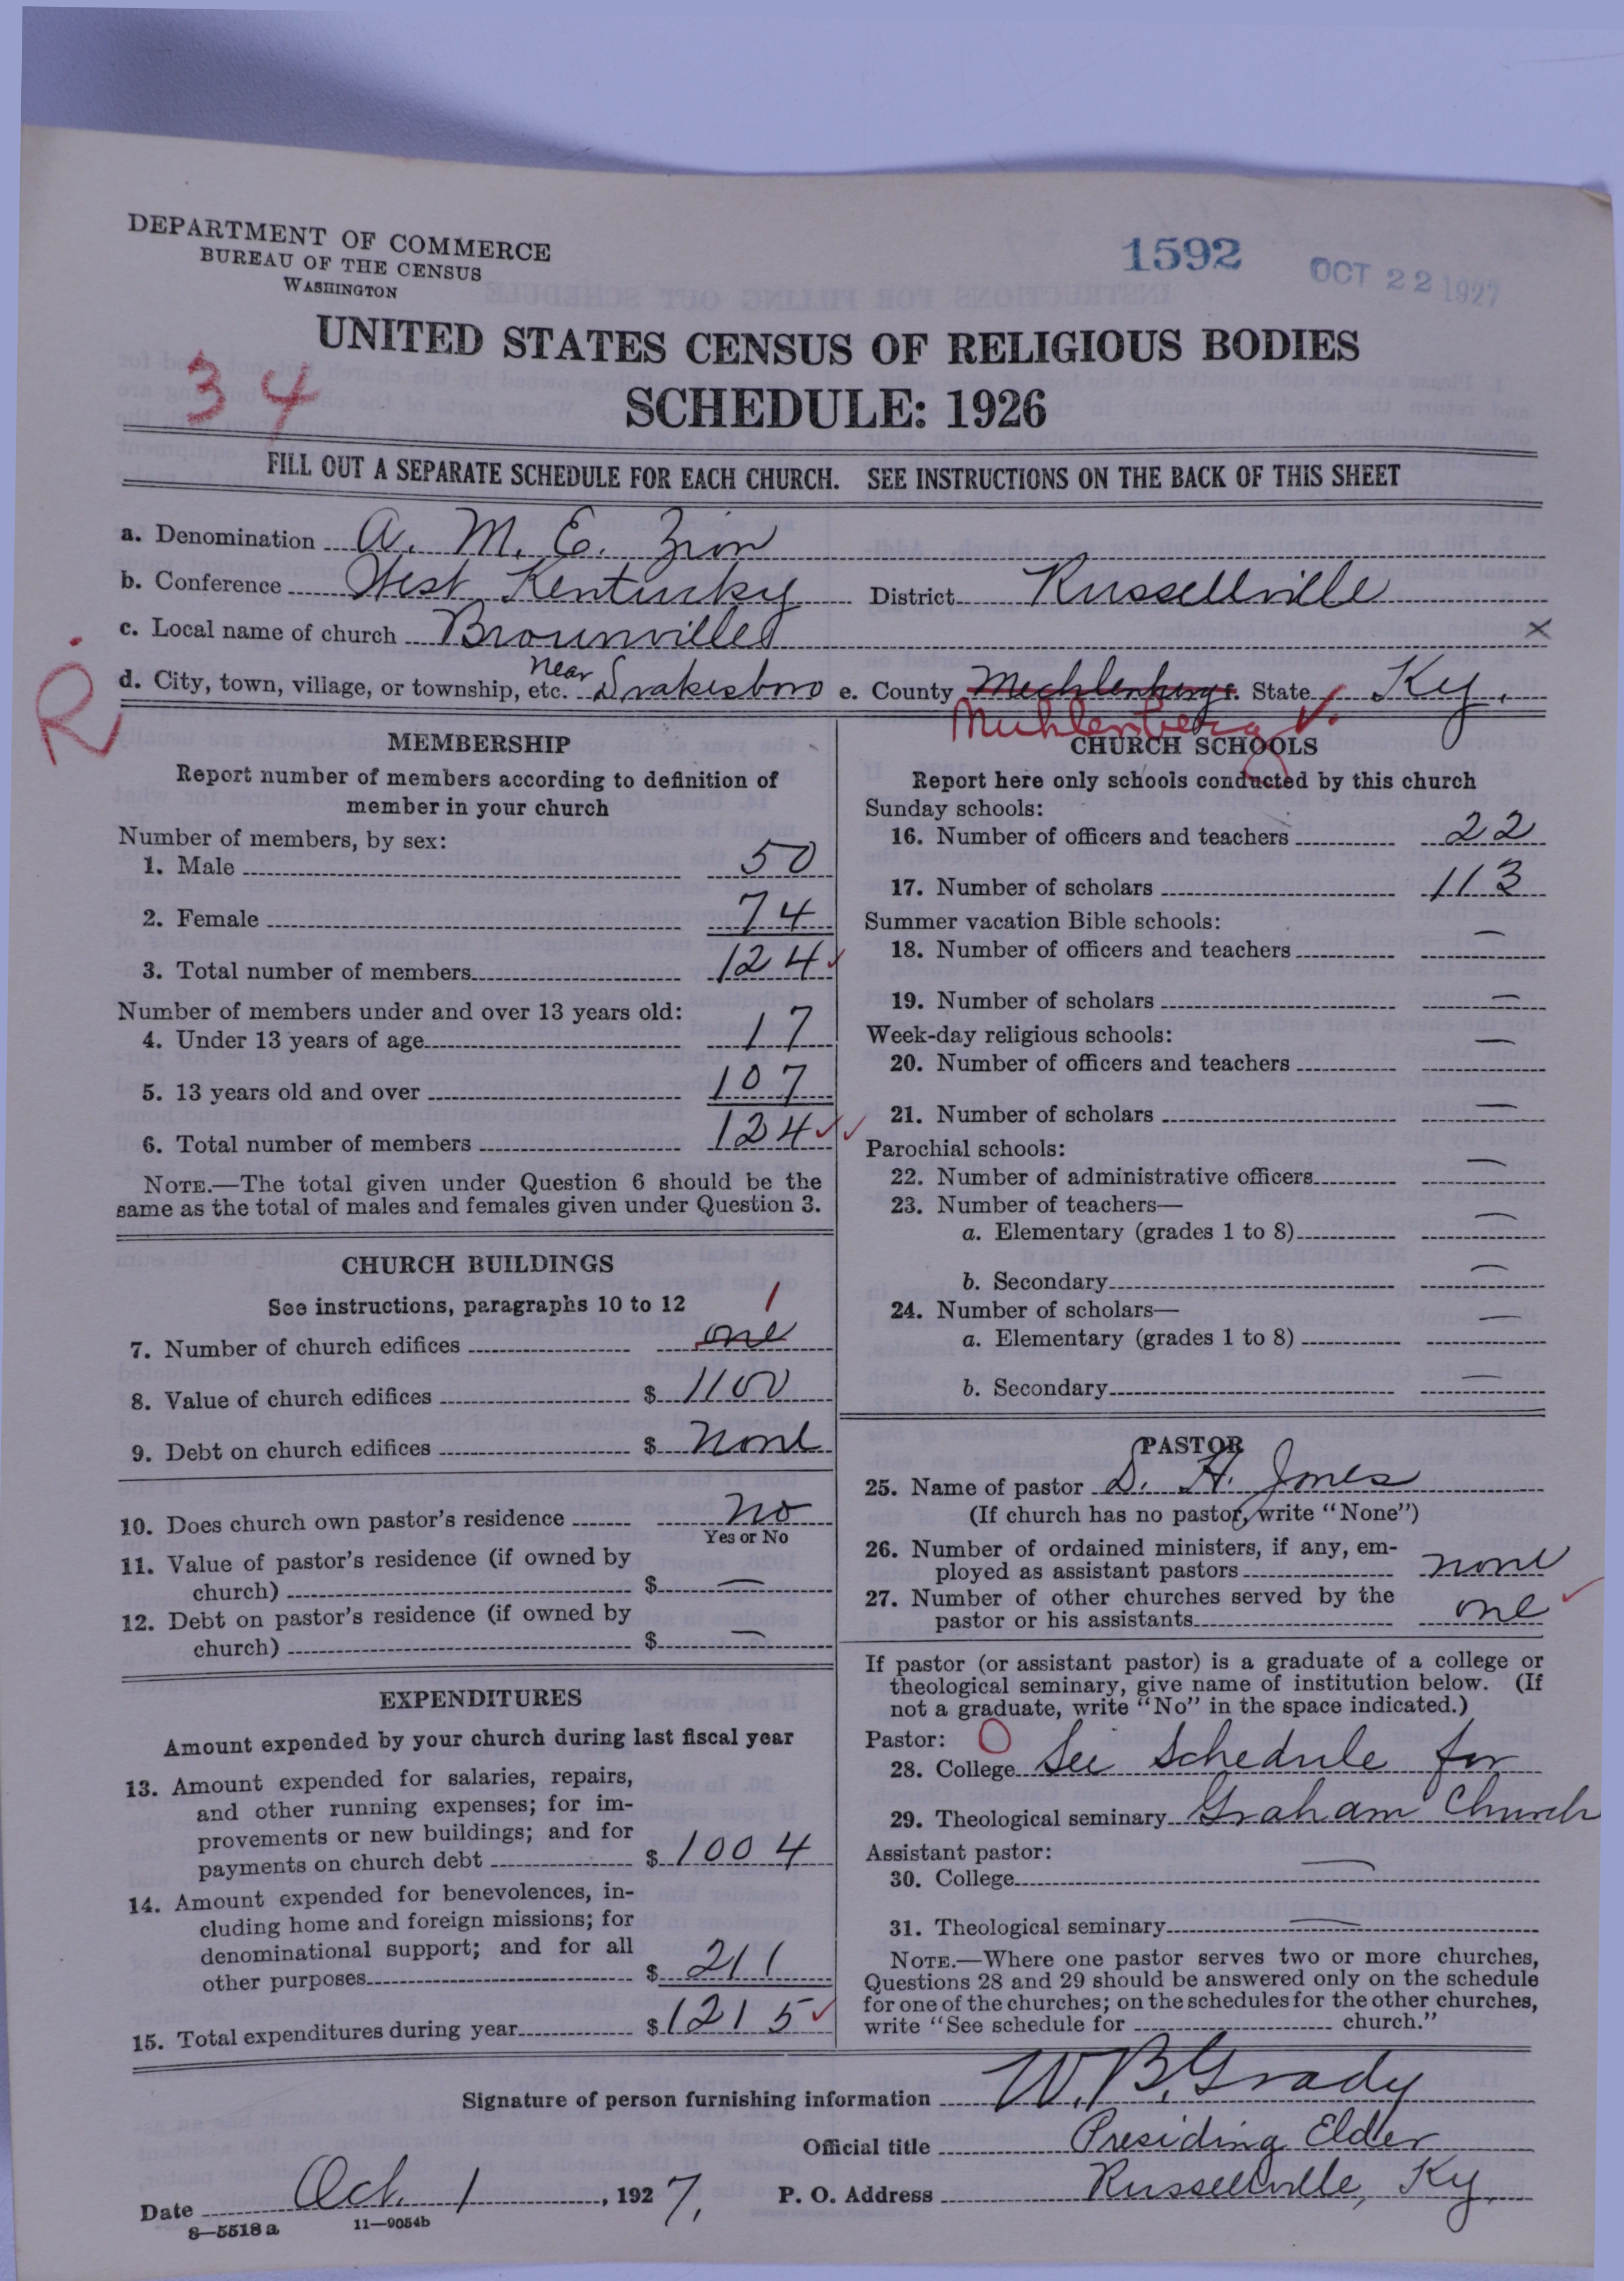 DEPARTMENT OF COMMERCE
BUREAU OF THE CENSUS
WASHINGTON
1592
OCT 22 1927
UNITED STATES CENSUS OF RELIGIOUS BODIES
34
SCHEDULE: 1926
FILL OUT A SEPARATE SCHEDULE FOR EACH CHURCH. SEE INSTRUCTIONS ON THE BACK OF THIS SHEET
a. Denomination A. M. E. Zion
b. Conference West Kentucky District Russellville
c. Local name of church Brownville X
d. City, town, village, or township, etc. near Drakesboro e. County Mechlenburg State Ky.
R
Muhlenberg
MEMBERSHIP
Report number of members according to definition of
member in your church
Number of members, by sex:
1. Male 50
2. Female 74
3. Total number of members 124
Number of members under and over 13 years old:
4. Under 13 years of age 17
5. 13 years old and over 107
6. Total number of members 124
NOTE.—The total given under Question 6 should be the
same as the total of males and females given under Question 3.
CHURCH BUILDINGS
See instructions, paragraphs 10 to 12
1
7. Number of church edifices one
8. Value of church edifices $ 1100
9. Debt on church edifices $ none
10. Does church own pastor's residence no
Yes or No
11. Value of pastor's residence (if owned by
church) $ —
12. Debt on pastor's residence (if owned by
church) $ —
EXPENDITURES
Amount expended by your church during last fiscal year
13. Amount expended for salaries, repairs,
and other running expenses; for im-
provements or new buildings; and for
payments on church debt $ 1004
14. Amount expended for benevolences, in-
cluding home and foreign missions; for
denominational support; and for all
other purposes $ 211
15. Total expenditures during year $ 1215
CHURCH SCHOOLS
Report here only schools conducted by this church
Sunday schools:
16. Number of officers and teachers 22
17. Number of scholars 113
Summer vacation Bible schools:
18. Number of officers and teachers —
19. Number of scholars —
Week-day religious schools:
20. Number of officers and teachers —
21. Number of scholars —
Parochial schools:
22. Number of administrative officers —
23. Number of teachers—
a. Elementary (grades 1 to 8) —
b. Secondary —
24. Number of scholars—
a. Elementary (grades 1 to 8) —
b. Secondary —
PASTOR
25. Name of pastor D. H. Jones
(If church has no pastor, write "None")
26. Number of ordained ministers, if any, em-
ployed as assistant pastors none
27. Number of other churches served by the
pastor or his assistants one
If pastor (or assistant pastor) is a graduate of a college or
theological seminary, give name of institution below. (If
not a graduate, write "No" in the space indicated.)
Pastor: O
28. College See Schedule for
29. Theological seminary Graham Church
Assistant pastor:
30. College —
31. Theological seminary —
NOTE.—Where one pastor serves two or more churches,
Questions 28 and 29 should be answered only on the schedule
for one of the churches; on the schedules for the other churches,
write "See schedule for church."
Signature of person furnishing information W. B. Grady
Official title Presiding Elder
Date Oct. 1, 1927. P. O. Address Russellville, Ky.
8—5518 a 11—9054b